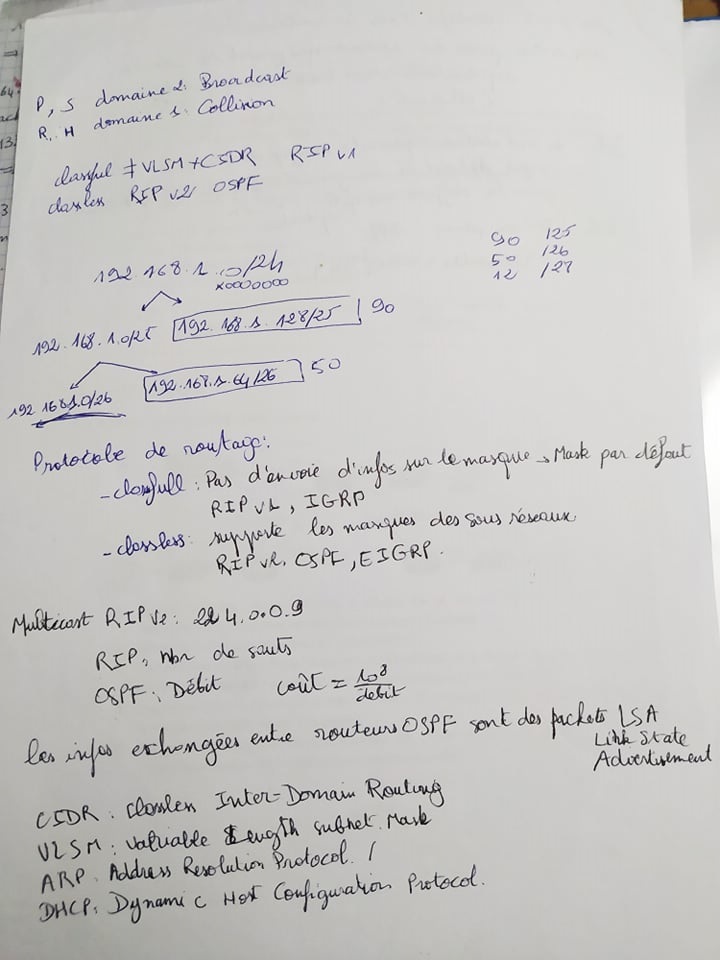 P, S domaine 2: Broadcast
R, H domaine 1: Collision
classful ≠ VLSM + CIDR RIP v1
classless RIP v2 OSPF
192.168.1.0/24
x0000000
90 /25
50 /26
12 /27
192.168.1.0/25 192.168.1.128/25 90
192.168.1.0/26 192.168.1.64/26 50
Protocole de routage:
- classfull : Pas d'envoie d'infos sur le masque → Mask par défaut
RIP v1, IGRP
- classless: supporte les masques des sous réseaux
RIP v2, OSPF, EIGRP.
Multicast RIP v2: 224.0.0.9
RIP: Nbr de sauts
OSPF: Débit coût = 10^8 / débit
les infos exchangées entre routeurs OSPF sont des packets LSA
Link State
Advertisement
CIDR: Classless Inter-Domain Routing
VLSM: Valiable Length subnet Mask
ARP: Address Resolution Protocol. /
DHCP: Dynamic Host Configuration Protocol.